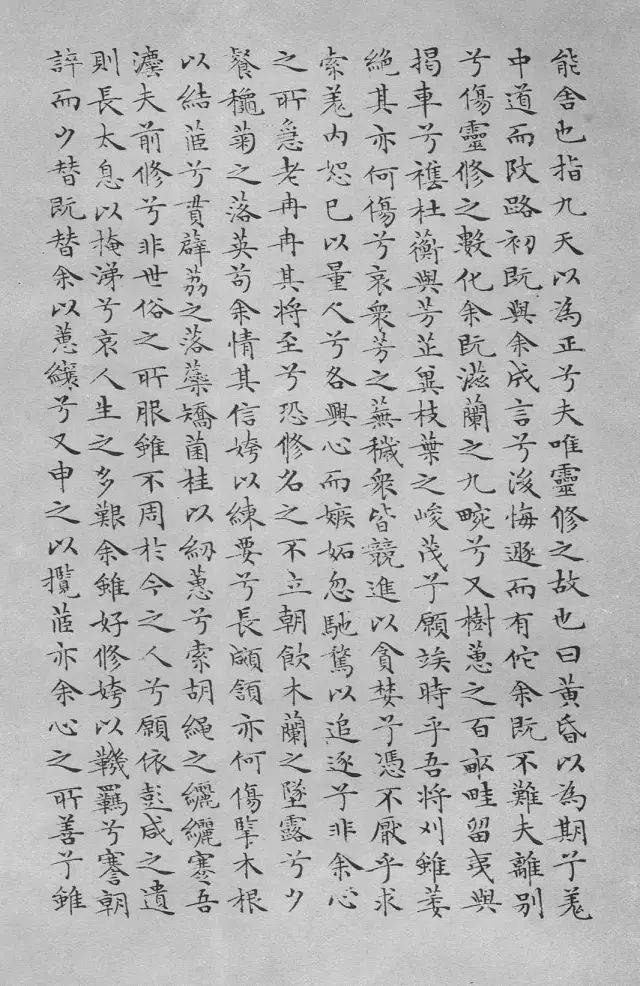 能舍也指九天以為正兮夫唯靈修之故也曰黃昏以為期兮羌
中道而改路初既與余成言兮後悔遁而有佗余既不難夫離別
兮傷靈修之數化余既滋蘭之九畹兮又樹蕙之百畝畦留夷與
揭車兮襍杜蘅與芳芷兾枝葉之峻茂兮願竢時乎吾將刈雖萎
絕其亦何傷兮哀眾芳之蕪穢眾皆競進以貪婪兮憑不厭乎求
索羌內恕己以量人兮各興心而嫉妬忽馳騖以追逐兮非余心
之所急老冉冉其將至兮恐修名之不立朝飲木蘭之墜露兮夕
餐穐菊之落英苟余情其信姱以練要兮長顑頷亦何傷擥木根
以結茝兮貫薜荔之落蘂矯菌桂以紉蕙兮索胡繩之纚纚謇吾
灋夫前修兮非世俗之所服雖不周於今之人兮願依彭咸之遺
則長太息以掩涕兮哀人生之多艱余雖好修姱以鞿羈兮謇朝
誶而夕替既替余以蕙纕兮又申之以攬茝亦余心之所善兮雖